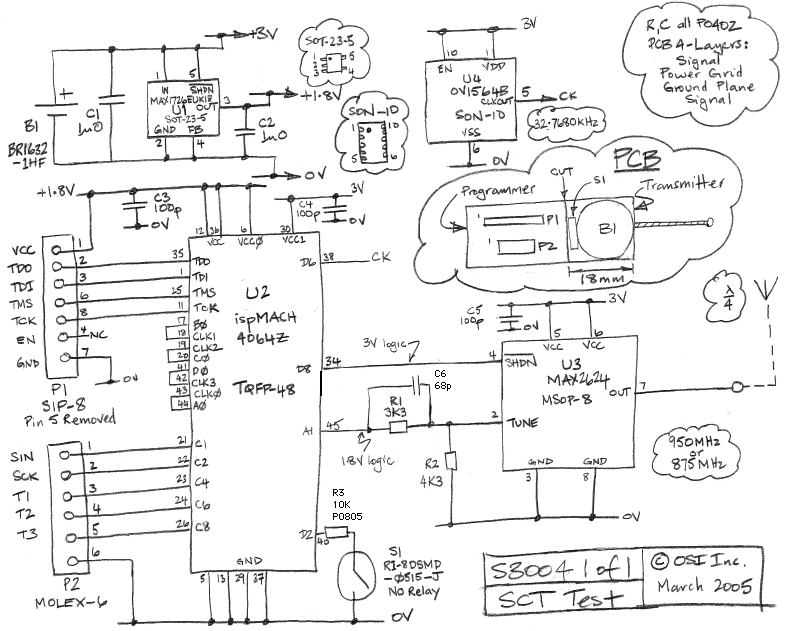 +3V
SOT-23-5
1
2
3
5
4
1
5
IN
SHDN
MAX1726EUK18
U1
OUT
3
SOT-23-5
GND
FB
2
4
+
B1
BR1632
-1HF
C1
1u0
C2
1u0
+1.8V
0V
SON-10
1
10
5
6
3V
10
1
EN
VDD
U4
OV1564B
CLKOUT
5
CK
SON-10
VSS
6
0V
32.7680kHz
R,C all P0402
PCB 4-Layers:
Signal
Power Grid
Ground Plane
Signal
PCB
CUT
S1
Programmer
Transmitter
1
P1
1
P2
B1
18mm
+1.8V
C3
100p
0V
C4
100p
3V
0V
12
36
6
30
VCC
VCC0
VCC1
VCC
1
TDO
2
35
TDO
TDI
3
1
TDI
TMS
6
25
TMS
TCK
8
11
TCK
EN
4
NC
GND
7
0V
P1
SIP-8
Pin 5 Removed
17
B0
18
CLK1
19
CLK2
20
C0
41
D0
42
CLK3
43
CLK0
44
A0
U2
ispMACH
4064Z
TQFP-48
D6
38
CK
D8
34
3V logic
A1
45
1.8V logic
C6
68p
R1
3K3
R2
4K3
C5
100p
3V
0V
5
6
VCC
VCC
4
SHDN
U3
MAX2624
MSOP-8
OUT
7
2
TUNE
GND
GND
3
8
0V
λ/4
950MHz
or
875MHz
SIN
1
21
C1
SCK
2
22
C2
T1
3
23
C4
T2
4
24
C6
T3
5
26
C8
6
P2
MOLEX-6
GND
5
13
29
37
D2
40
R3
10K
P0805
S1
RI-80SMD
-0515-J
No Relay
0V
S3004 1 of 1
SCT Test
© OSI Inc.
March 2005